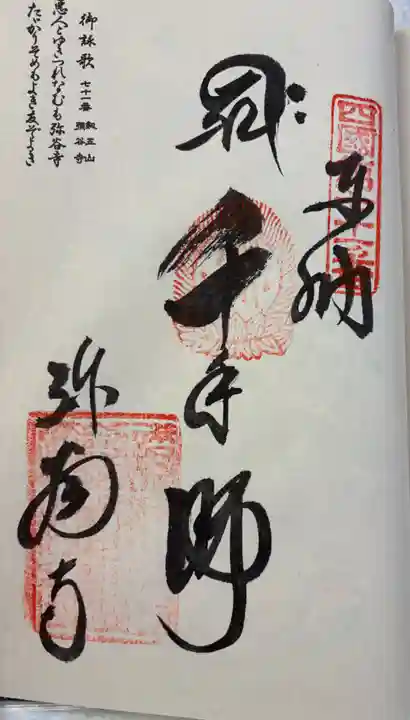 四國第七十一番
奉納
千手
弥谷寺
御詠歌 七十一番 剣五山 弥谷寺
悪人とゆきつれなむも弥谷寺
たゞかりそめもよき友ぞよき